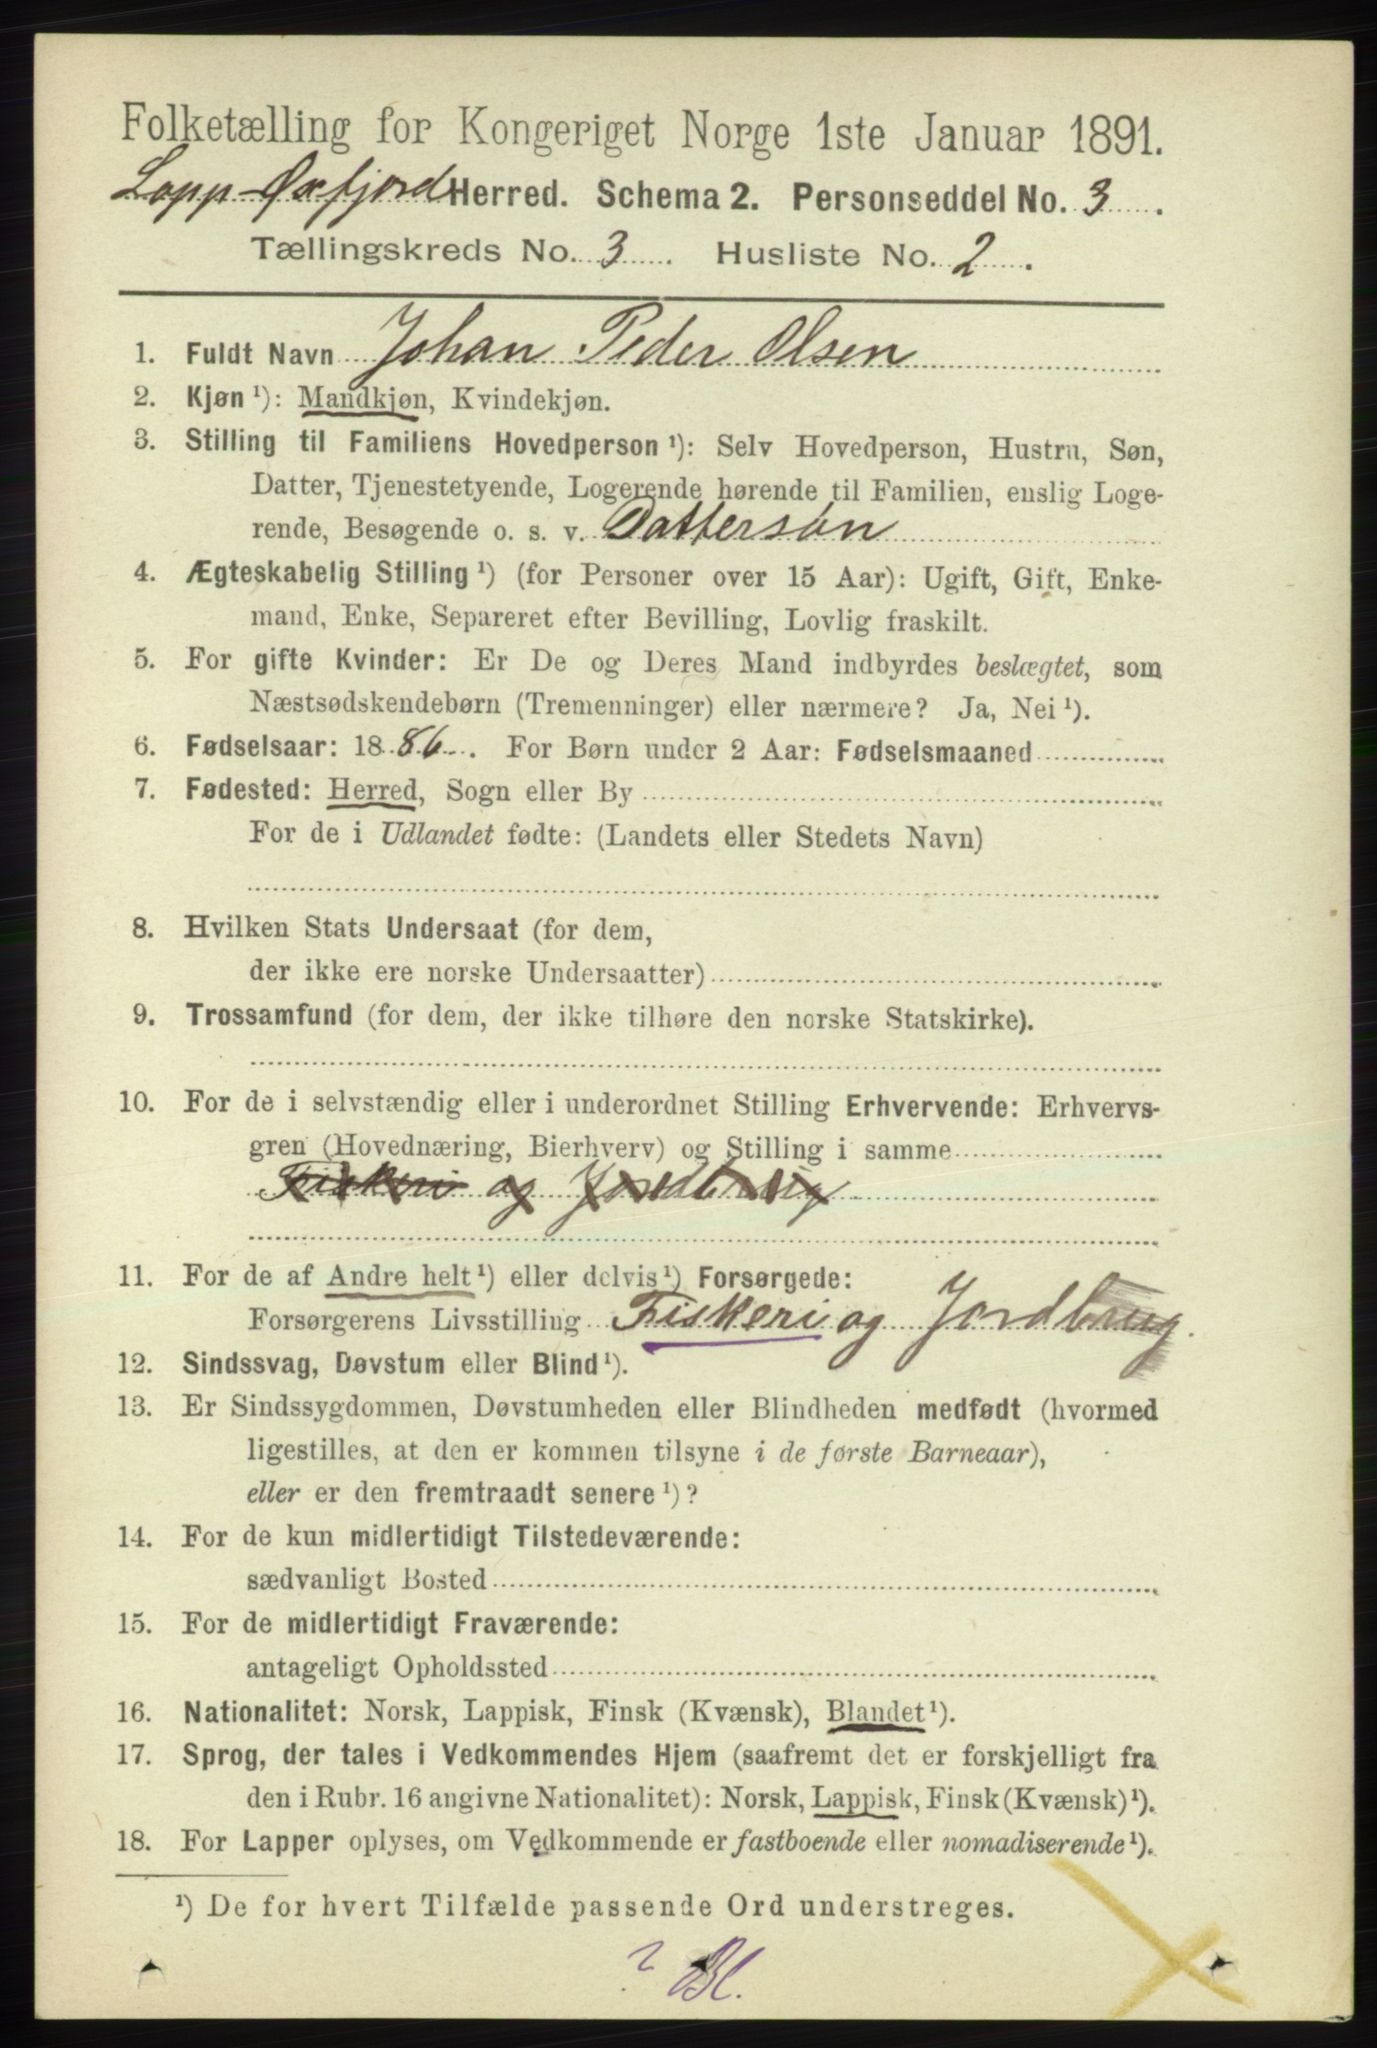 Folketælling for Kongeriget Norge 1ste Januar 1891.
Lopp-Øxfjord Herred. Schema 2. Personseddel No. 3.
Tællingskreds No. 3. Husliste No. 2.
1. Fuldt Navn Johan Peder Olsen
2. Kjøn ¹): Mandkjøn, Kvindekjøn.
3. Stilling til Familiens Hovedperson ¹): Selv Hovedperson, Hustru, Søn,
Datter, Tjenestetyende, Logerende hørende til Familien, enslig Loge-
rende, Besøgende o. s. v. Dattersøn
4. Ægteskabelig Stilling ¹) (for Personer over 15 Aar): Ugift, Gift, Enke-
mand, Enke, Separeret efter Bevilling, Lovlig fraskilt.
5. For gifte Kvinder: Er De og Deres Mand indbyrdes beslægtet, som
Næstsødskendebørn (Tremenninger) eller nærmere? Ja, Nei ¹).
6. Fødselsaar: 1886. For Børn under 2 Aar: Fødselsmaaned
7. Fødested: Herred, Sogn eller By
For de i Udlandet fødte: (Landets eller Stedets Navn)
8. Hvilken Stats Undersaat (for dem,
der ikke ere norske Undersaatter)
9. Trossamfund (for dem, der ikke tilhøre den norske Statskirke).
10. For de i selvstændig eller i underordnet Stilling Erhvervende: Erhvervs-
gren (Hovednæring, Bierhverv) og Stilling i samme
Fiskeri og Jordbrug
11. For de af Andre helt ¹) eller delvis ¹) Forsørgede:
Forsørgerens Livsstilling Fiskeri og Jordbrug.
12. Sindssvag, Døvstum eller Blind ¹).
13. Er Sindssygdommen, Døvstumheden eller Blindheden medfødt (hvormed
ligestilles, at den er kommen tilsyne i de første Barneaar),
eller er den fremtraadt senere ¹)?
14. For de kun midlertidigt Tilstedeværende:
sædvanligt Bosted
15. For de midlertidigt Fraværende:
antageligt Opholdssted
16. Nationalitet: Norsk, Lappisk, Finsk (Kvænsk), Blandet ¹).
17. Sprog, der tales i Vedkommendes Hjem (saafremt det er forskjelligt fra
den i Rubr. 16 angivne Nationalitet): Norsk, Lappisk, Finsk (Kvænsk) ¹).
18. For Lapper oplyses, om Vedkommende er fastboende eller nomadiserende ¹).
¹) De for hvert Tilfælde passende Ord understreges.
? Bl.